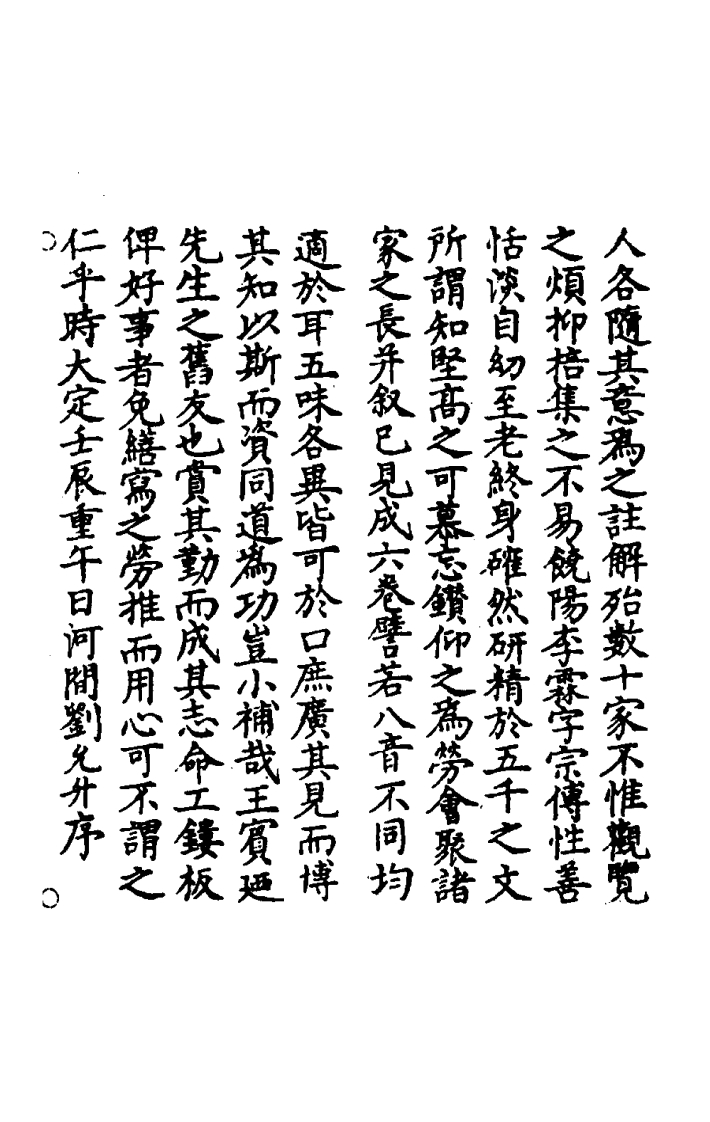 人各隨其意爲之註解殆數十家不惟觀覽
之煩抑掊集之不易饒陽李霖字宗傳性善
恬淡自幼至老終身確然研精於五千之文
所謂知堅高之可慕忘鑽仰之爲勞會聚諸
家之長并叙已見成六卷譬若八音不同均
適於耳五味各異皆可於口庶廣其見而博
其知以斯而資同道爲功豈小補哉王賓廼
先生之舊友也賞其勤而成其志命工鏤板
俾好事者免繕寫之勞推而用心可不謂之
仁乎時大定壬辰重午日河間劉允升序